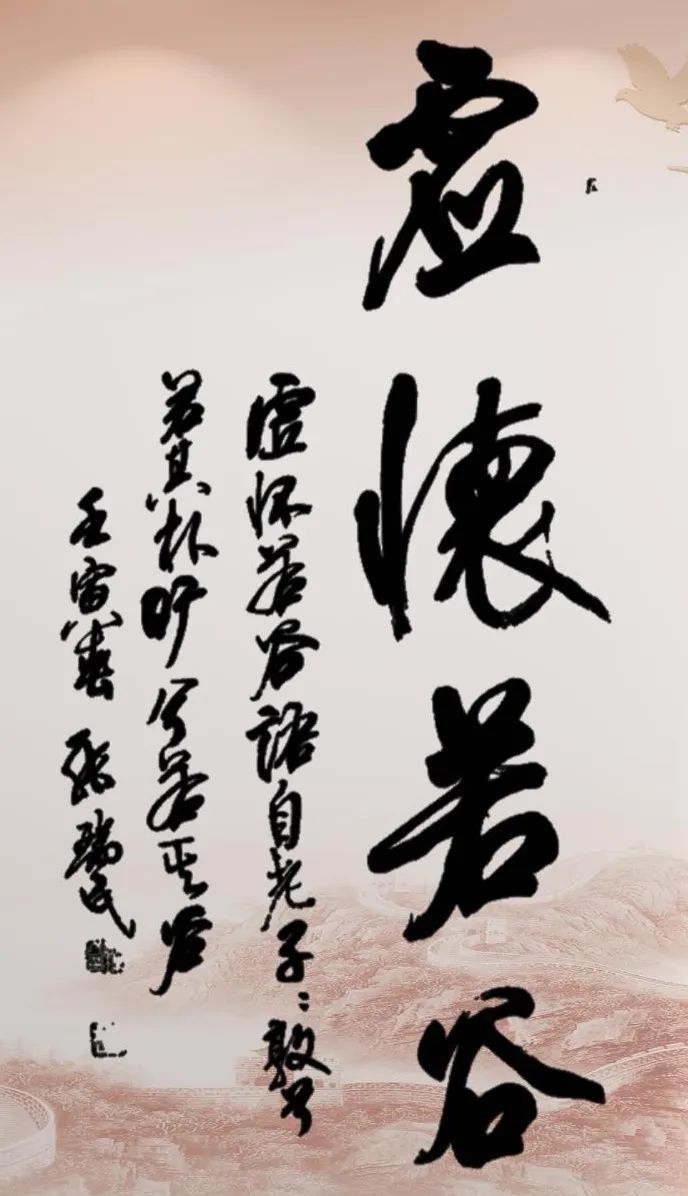 虚懷若谷
虚怀若谷語自老子：敦兮
若其朴旷兮若其谷
壬寅春張瑞民